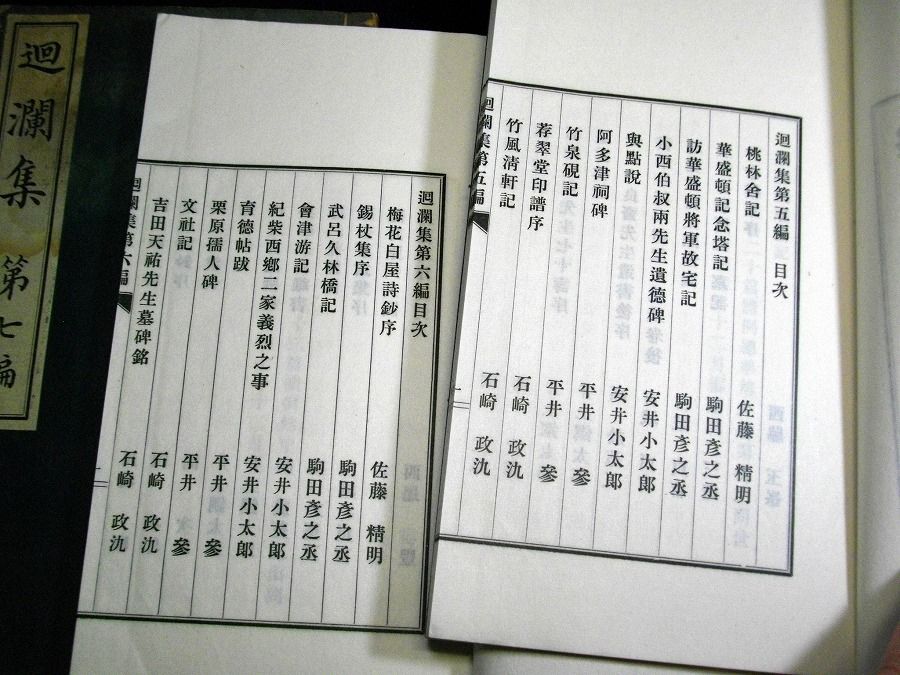 迴瀾集第五編 目次
桃林舍記 佐藤 精明
華盛頓記念塔記 駒田彦之丞
訪華盛頓將軍故宅記 駒田彦之丞
小西伯叔兩先生遺德碑 安井小太郎
與點說 安井小太郎
阿多津祠碑 平井 參
竹泉硯記 平井 參
荐翠堂印譜序 石崎 政氿
竹風淸軒記 石崎 政氿
迴瀾集第五編
一
迴瀾集第六編目次
梅花白屋詩鈔序 佐藤 精明
錫杖集序 駒田彦之丞
武呂久林橋記 駒田彦之丞
會津游記 安井小太郎
紀柴西鄉二家義烈之事 安井小太郎
育德帖跋 平井 參
栗原孺人碑 平井 參
文社記 石崎 政氿
吉田天祐先生墓碑銘 石崎 政氿
迴瀾集第六編
一
迴瀾集 第七編